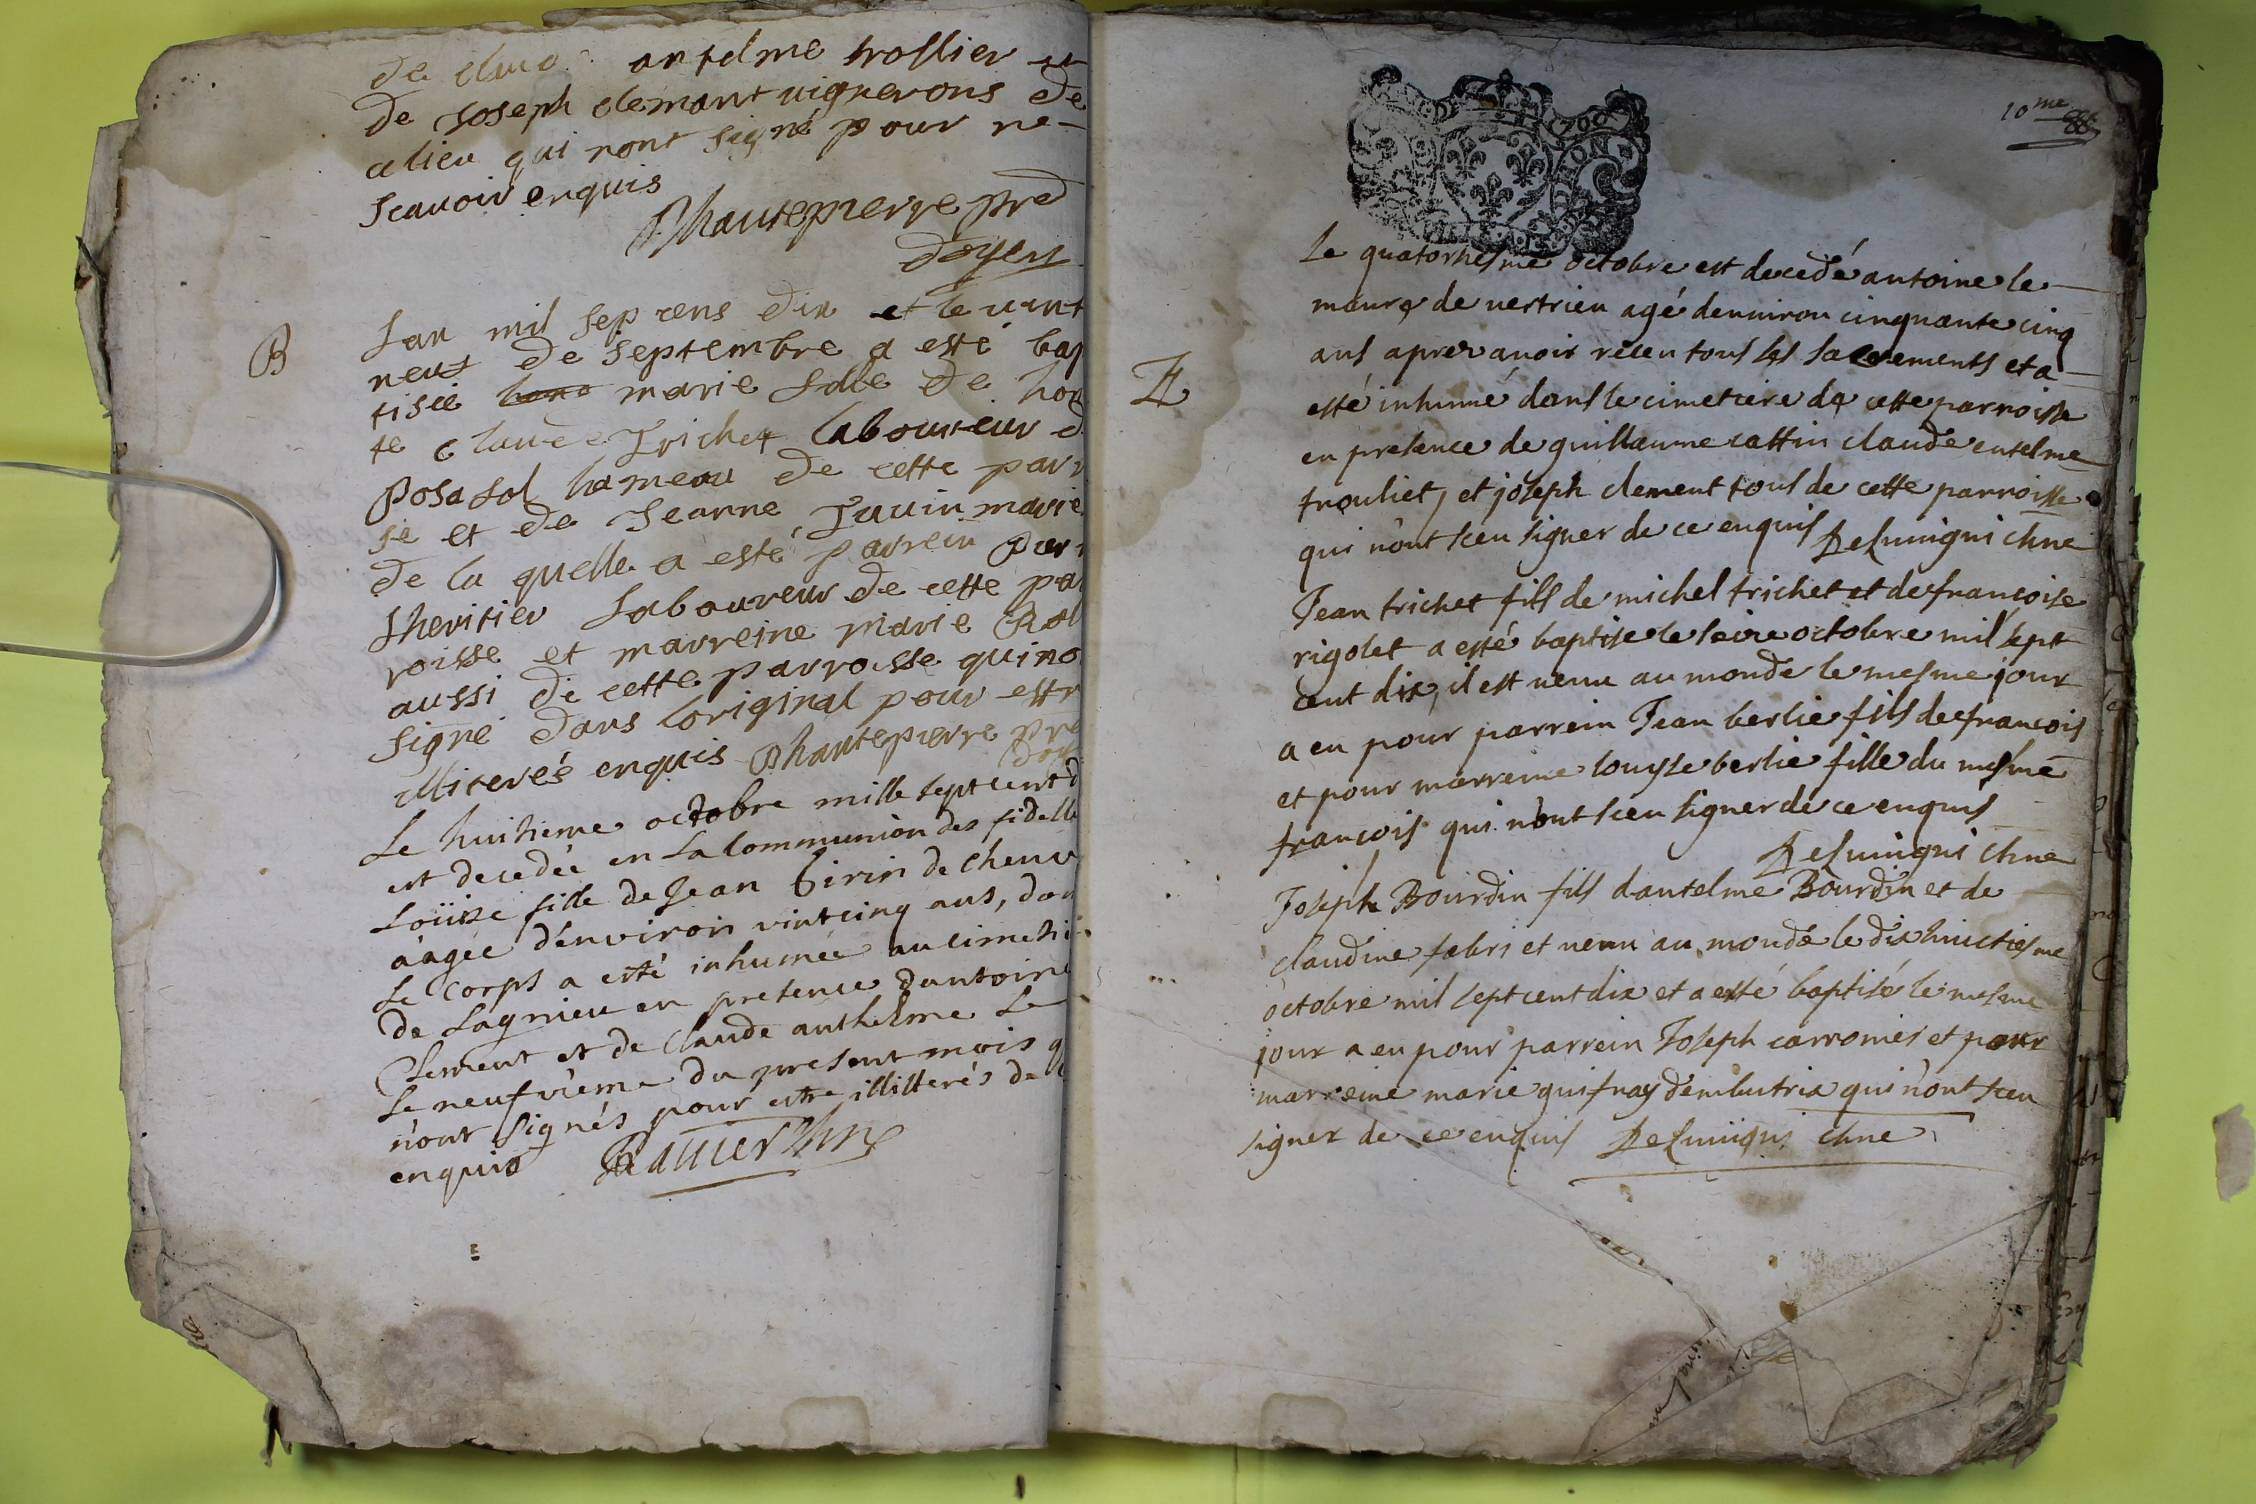 de claud anselme trollier et
de Joseph clemant vignerons de
ce lieu qui nont signé pour ne
scavoir enquis
Dhautepierre pre
doyen
B
Lan mil sept cens dix et le vint
neuf de septembre a esté bap
tisée marie fille de hon
te Claude Trichet laboureur d
Posafol hameau de cette parr
se et de Jeanne Juvin marie
de la quelle a esté parrein pier
Lheritier laboureur de cette pa
roisse et marreine marie Rol
aussi de cette parroisse qui no
signé dans loriginal pour estr
illiterés enquis Dhautepierre pre
doy
Le huitieme octobre mille sept cent d
est decedée en la Communion des fidelle
Loüise fille de Jean Girin de Chenv
aagée denviron vint cinq ans, don
le corps a esté inhumée au cimeti
de Lagnieu en presence dantoine
Clement et de Claude anthelme Le
Le neufvieme du present mois q
n'ont signés pour estre illitterés de c
enquis Ravier Chne
10me
Le quatorhesme octobre est decedé antoine le
maure de vertrieu agé denniron cinquante cinq
ans apres avoir receu tous les sacrements et a
esté inhumé dans le cimetiere de cette parroisse
en presance de guillaume cattin claude entelme
trouliet, et joseph clement tous de cette parroisse
qui n'ont sceu signer de ce enquis Desuinqni chne
Jean trichet fils de michel trichet et de francoise
rigolet a esté baptise le seize octobre mil sept
cent dix, il est venu au monde le mesme jour
a eu pour parrein Jean berlie fils de francois
et pour marreine louyse berlie fille du mesme
francois qui n'ont sceu signer de ce enquis
Desuinqni chne
Joseph Bourdin fils dantelme Bourdin et de
claudine fabri et venu au monde le dix huictiesme
octobre mil sept cent dix et a esté baptisé le mesme
jour a eu pour parrein Joseph carronier et pour
marreine marie guifray d'embutrix qui n'ont sceu
signer de ce enquis Desuinqni chne